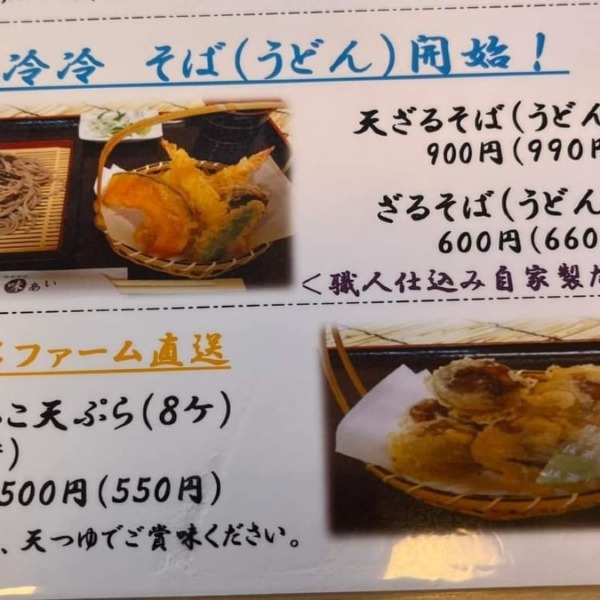 冷冷 そば(うどん)開始!
天ざるそば(うどん
900円(990円
ざるそば(うどん
600円(660
味あい
<職人仕込み自家製だ
ファーム直送
こ天ぷら(8ケ)
)
500円(550円)
、天つゆでご賞味ください。